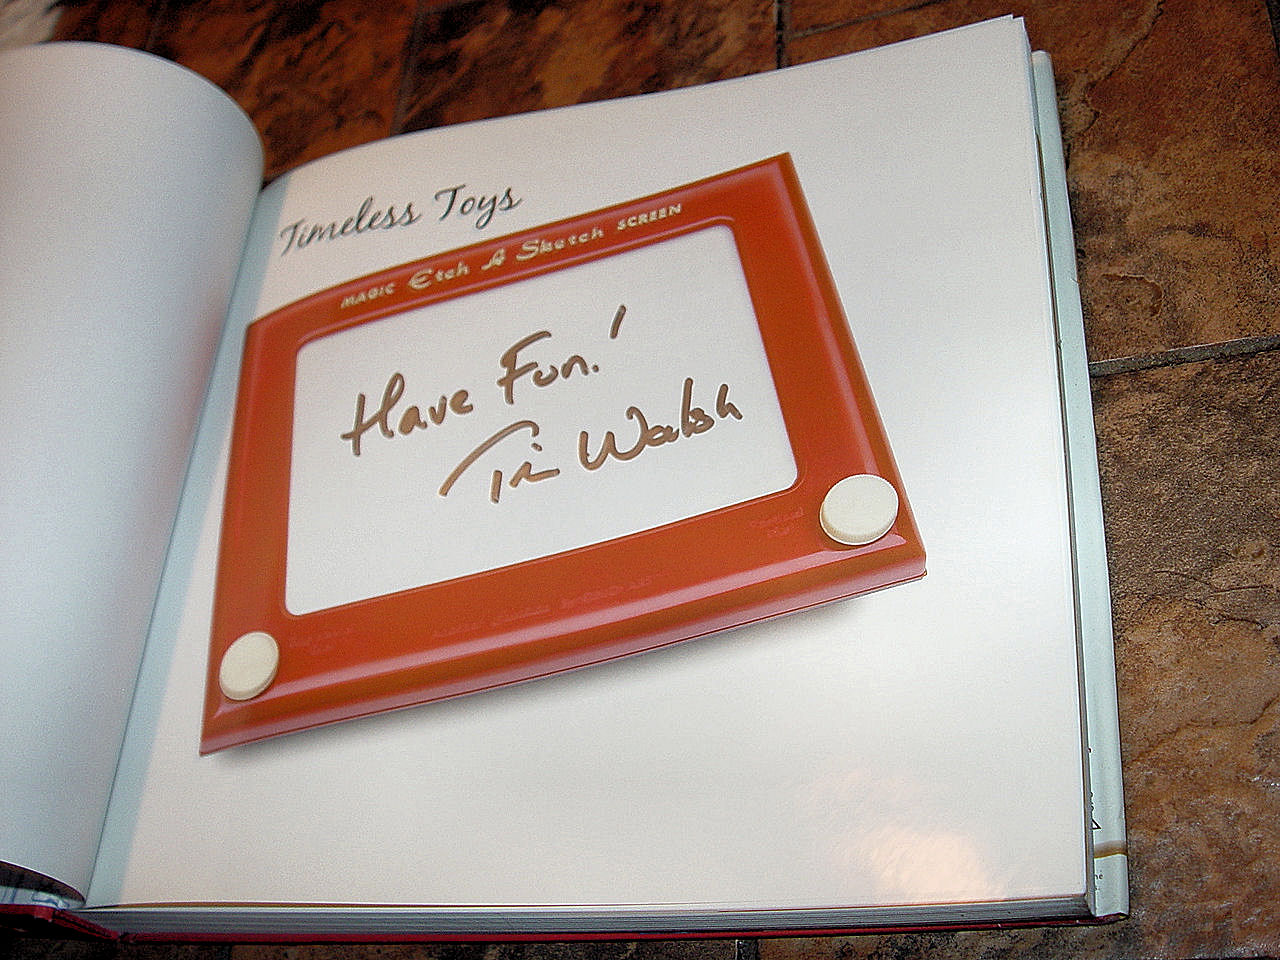 Timeless Toys
MAGIC Etch A Sketch SCREEN
Have Fun!
Tim Walsh